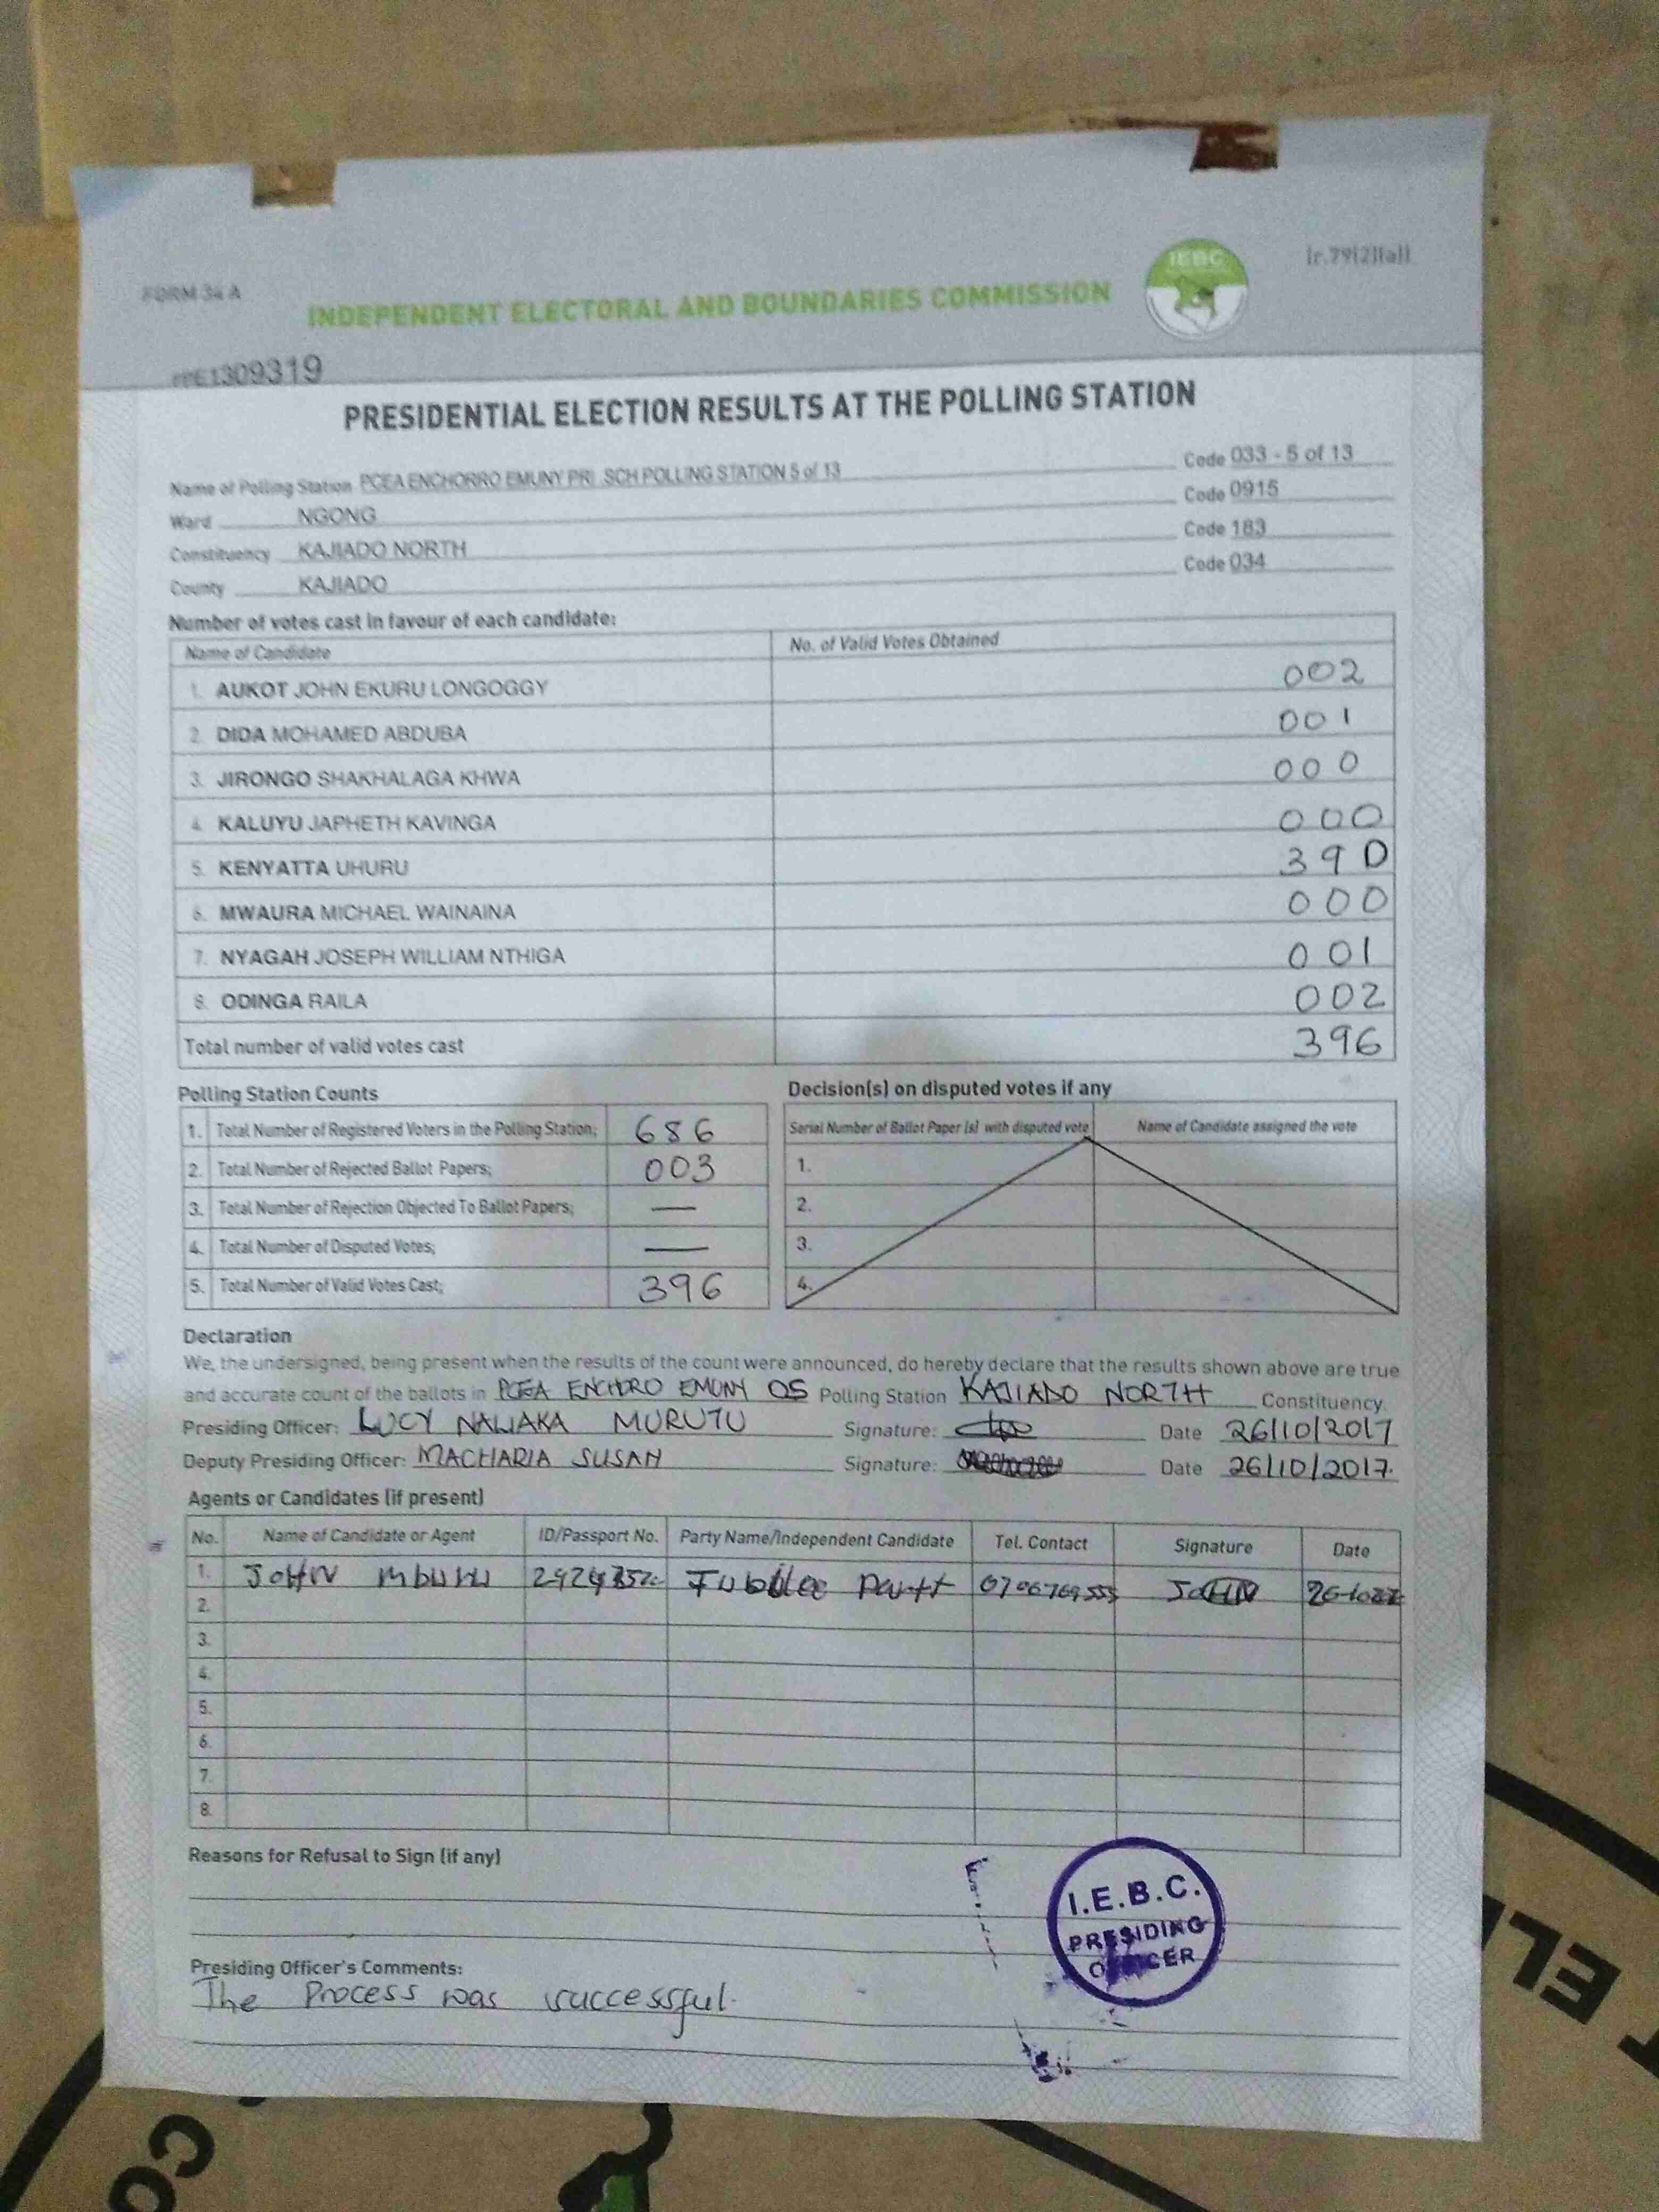 FORM 34 A
INDEPENDENT ELECTORAL AND BOUNDARIES COMMISSION
IEBC
(r.79(2)(a))
1309319
PRESIDENTIAL ELECTION RESULTS AT THE POLLING STATION
Name of Polling Station PCEA ENCHORRO EMUNY PRI SCH POLLING STATION 5 of 13 Code 033 - 5 of 13
Ward NGONG Code 0915
Constituency KAJIADO NORTH Code 183
County KAJIADO Code 034
Number of votes cast in favour of each candidate:
Name of Candidate No. of Valid Votes Obtained
1. AUKOT JOHN EKURU LONGOGGY 002
2. DIDA MOHAMED ABDUBA 001
3. JIRONGO SHAKHALAGA KHWA 000
4. KALUYU JAPHETH KAVINGA 000
5. KENYATTA UHURU 390
6. MWAURA MICHAEL WAINAINA 000
7. NYAGAH JOSEPH WILLIAM NTHIGA 001
8. ODINGA RAILA 002
Total number of valid votes cast 396
Polling Station Counts
1. Total Number of Registered Voters in the Polling Station; 686
2. Total Number of Rejected Ballot Papers; 003
3. Total Number of Rejection Objected To Ballot Papers; —
4. Total Number of Disputed Votes; —
5. Total Number of Valid Votes Cast; 396
Decision(s) on disputed votes if any
Serial Number of Ballot Paper (s) with disputed vote Name of Candidate assigned the vote
1.
2.
3.
4.
Declaration
We, the undersigned, being present when the results of the count were announced, do hereby declare that the results shown above are true
and accurate count of the ballots in PCEA ENCHORO EMUNY 05 Polling Station KAJIADO NORTH Constituency.
Presiding Officer: LUCY NALIAKA MURUTU Signature: Date 26/10/2017
Deputy Presiding Officer: MACHARIA SUSAN Signature: Date 26/10/2017.
Agents or Candidates (if present)
No. Name of Candidate or Agent ID/Passport No. Party Name/Independent Candidate Tel. Contact Signature Date
1. JOHN Mburu Jubilee Party 0706769555 JOHN
2.
3.
4.
5.
6.
7.
8.
Reasons for Refusal to Sign (if any)
I.E.B.C.
PRESIDING
OFFICER
Presiding Officer's Comments:
The Process was successful.
ELE
CO